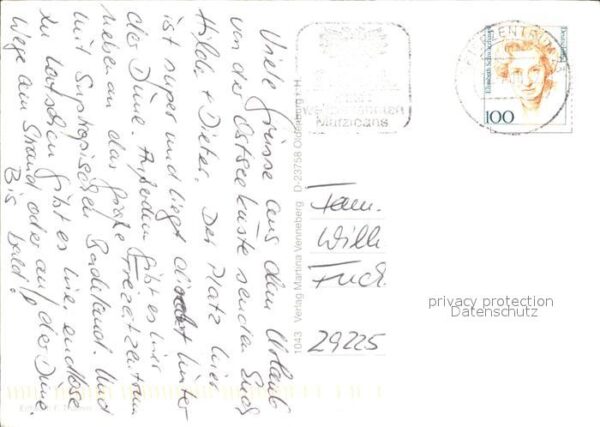 Viele Grüsse aus dem Urlaub
von der Ostseeküste senden Euch
Hilde + Dieter. Der Platz hier
ist super und liegt direkt hinter
der Düne. Außerdem gibt es hier
nebenan das große Freizeitzentrum
mit Subtropischen Badeland. Und
zu laufen gibt es hier endlose
Wege am Strand oder auf der Düne.
Bis bald!
1043 Verlag Martina Venneberg D-23758 Oldenburg i. H
Marzipans
ZENTRUM
Deutschland
Elisabeth Schwarzhaupt
100
Fam.
Willi
Fuch
29225
privacy protection
Datenschutz